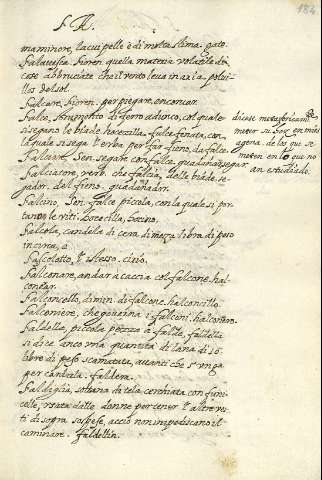 184
F. A.
ma minore, la cui pelle è di molta stima. gato.
Falavesca, Fioren. quella materia volatile di
cose abbruciate che il vento leva in aria.
del sol.
Falcare, Fioren. per piegare, encorvar.
Falce, strumento di ferro adunco, col quale
si segano le biade, hacecilla, falce fenata, con
la quale si sega l'erba per far fieno, la falce.
Falciare, Sen. segare con falce, guadañar, segar.
Falciatore, verb. che falcia, delle biade, se-
gador. dal fieno. guadañador.
Falcino, Sen. falce picola, con la quale si por-
tano le viti. hocecilla, hocino.
Falcola, candela di cera di meza libra di peso
in circa,
Falcolotto, l'istesso. cirio.
Falconare, andar a caccia col falcone. hal-
conear.
Falconcello, dimin. di falcone. halconcillo.
Falconiere, che governa i falconi. halconero.
Faldella, piccola pezzo di falde, faldella
si dice anco una quantità di lana di 10
libre di peso scamatata, avanti che s'unga
per cardarla. faldera.
Faldiglia, sottana di tela cerchiata con funi-
celle, usata dalle donne per tener l'altre ves-
ti di sopra sospese, acciò non impediscano il
caminare. faldellin.
dicese metaforicamte
meter su hoz en mies
agena, de los que se
meten en lo que no
an estudiado.